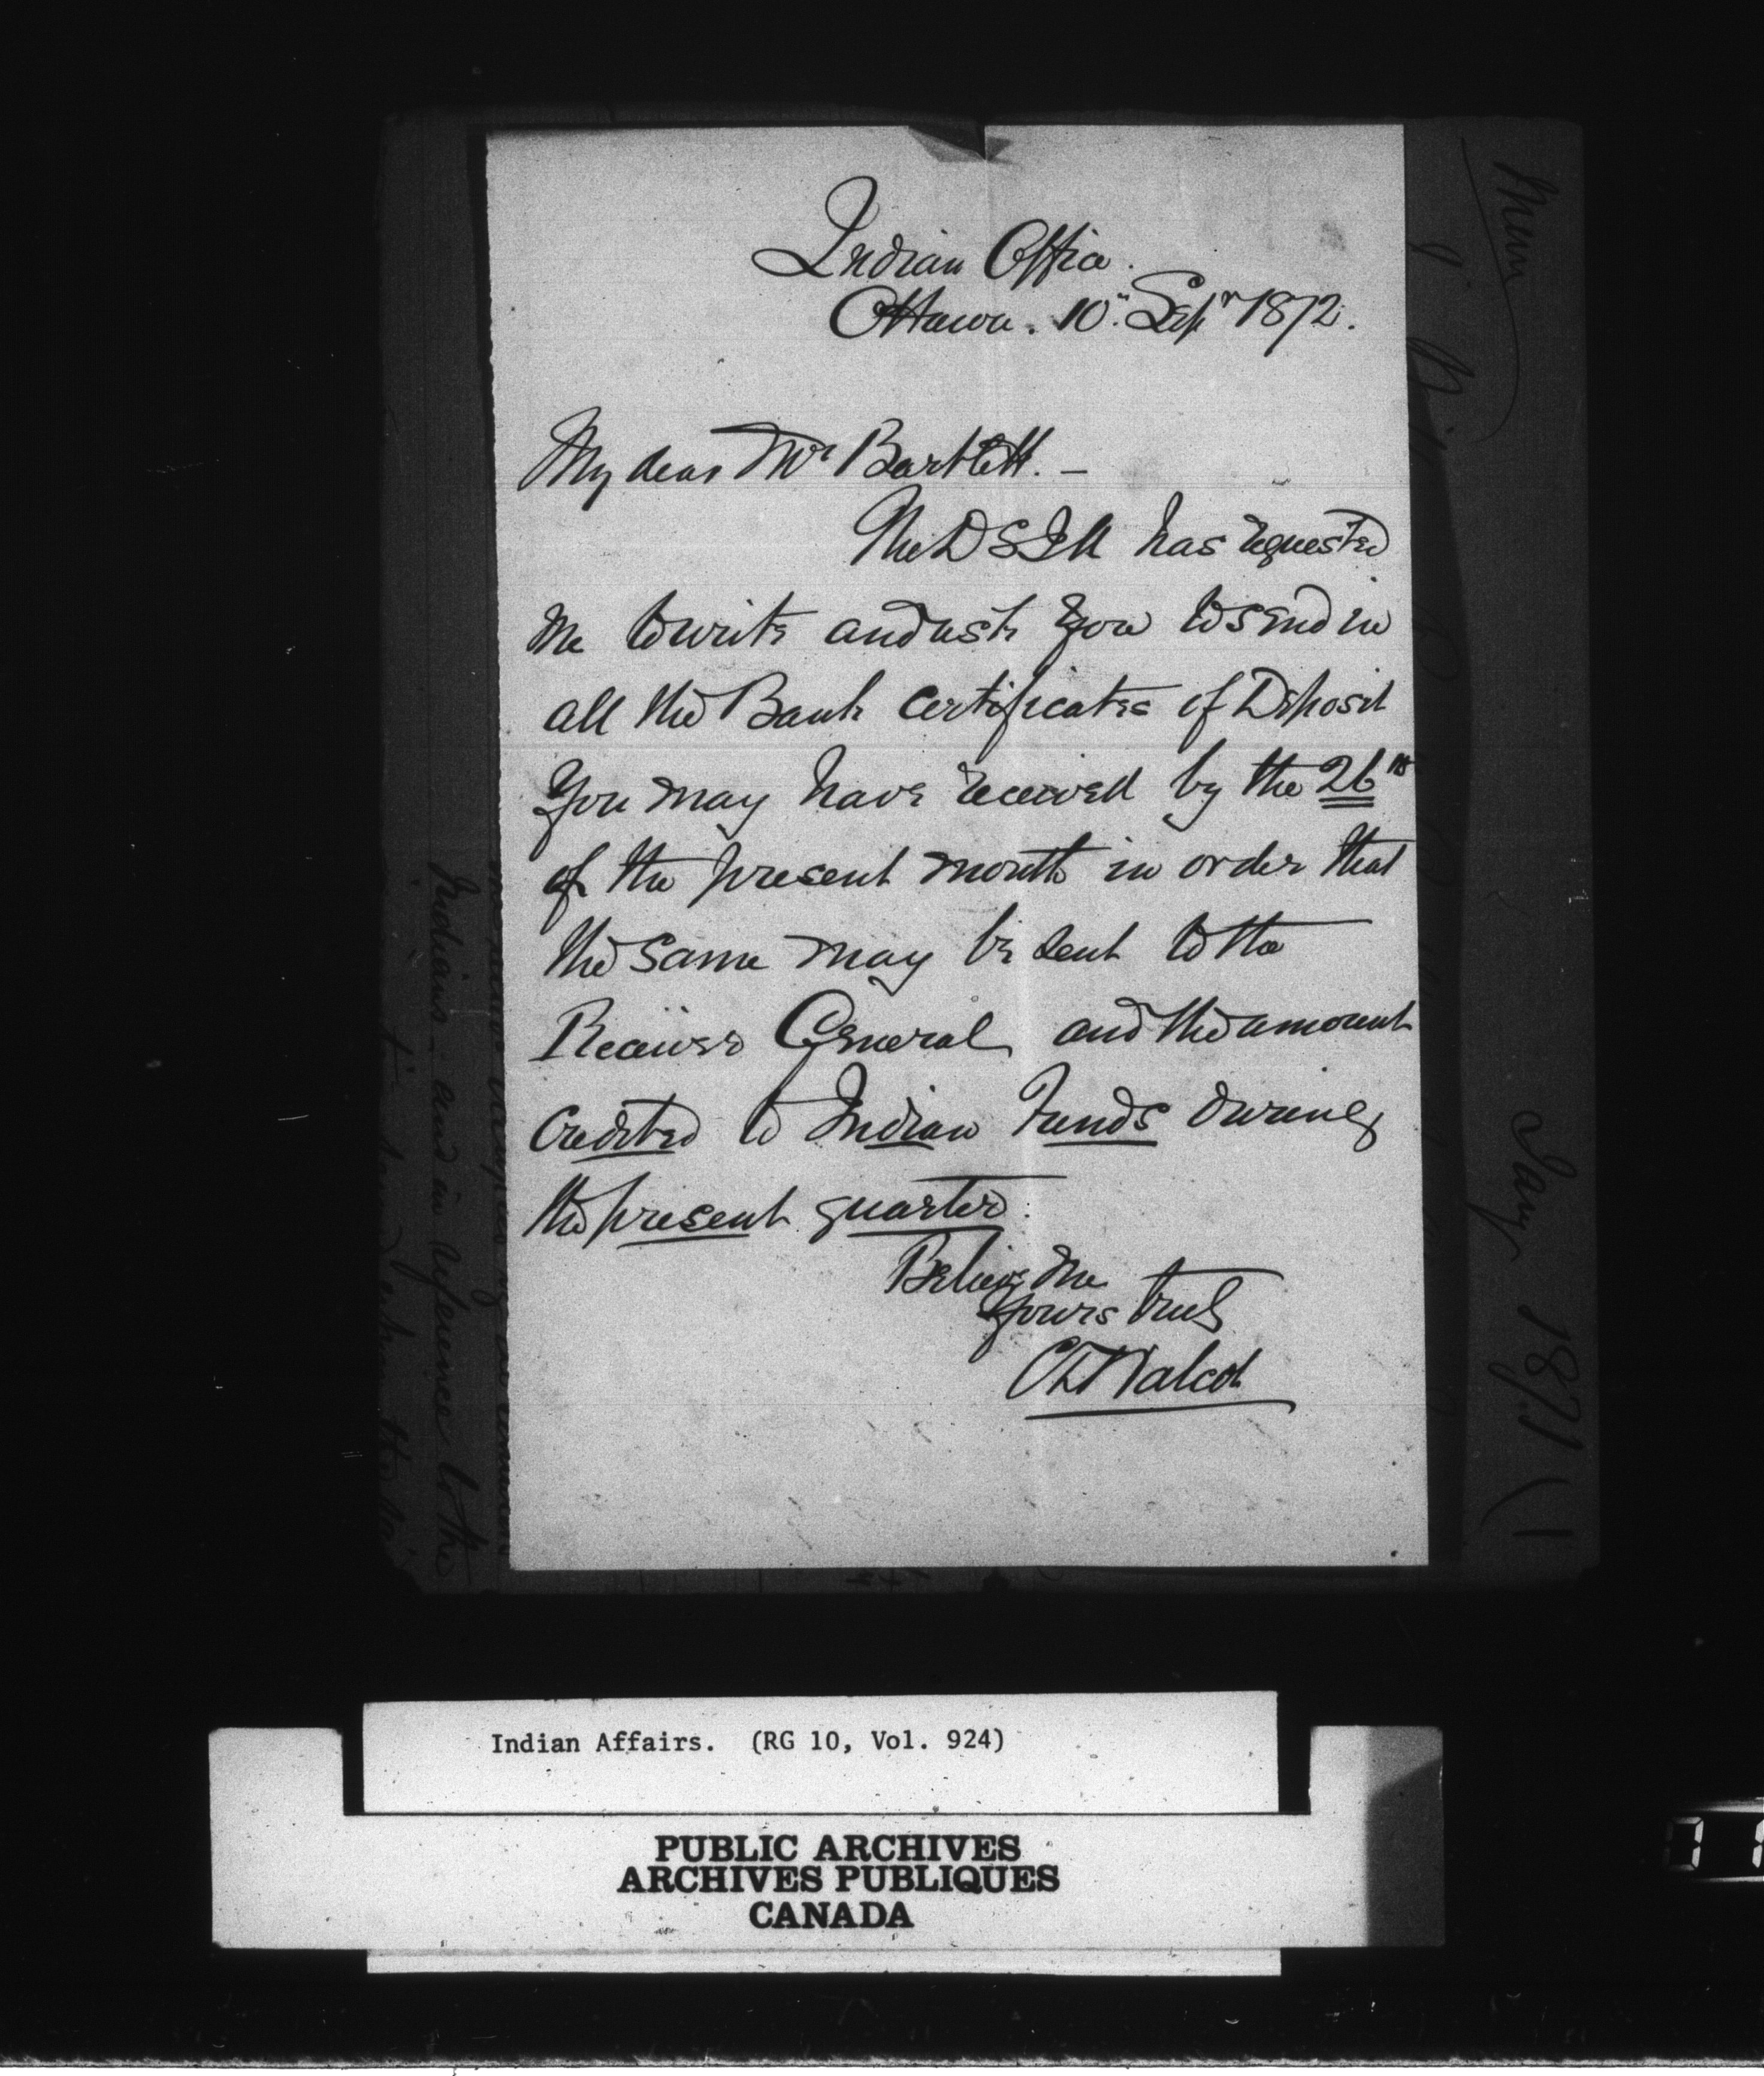 Indian Office.
Ottawa. 10th Sepr 1872.
My dear Mr Bartlett. —
The D S G I A has requested
me to write and ask you to send in
all the Bank Certificates of Deposit
you may have received by the 26th
of the present month in order that
the same may be sent to the
Receiver General and the amount
Credited to Indian Funds during
the present quarter.
Believe me
Yours truly
C T Walcot
Indians - and in reference to the
Jany 1871
Indian Affairs. (RG 10, Vol. 924)
PUBLIC ARCHIVES
ARCHIVES PUBLIQUES
CANADA